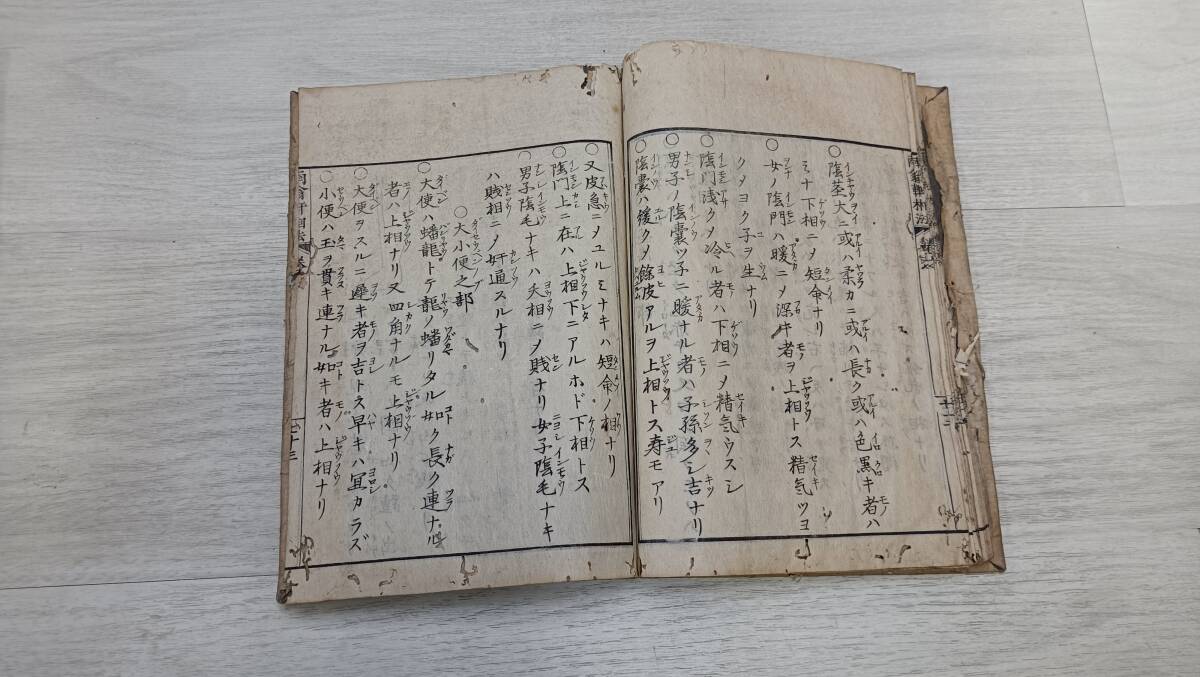 ○陰茎大ニ或ハ柔カニ或ハ長ク或ハ色黒キ者ハ
ミナ下相ニメ短命ナリ
○女ノ陰門ハ暖ニメ深キ者ヲ上相トス精気ツヨ
クメヨク子ヲ生ナリ
○陰門浅クメ冷ル者ハ下相ニメ精気ウスシ
○男子ノ陰嚢ツ子ニ暖ナル者ハ子孫多シ吉ナリ
○陰嚢ハ緩クメ餘皮アルヲ上相トス寿モアリ
○又皮急ニメユルミナキハ短命ノ相ナリ
○陰門上ニ在ハ上相下ニアルホド下相トス
○男子陰毛ナキハ夭相ニメ賎ナリ女子陰毛ナキ
ハ賎相ニメ奸通スルナリ
○大小便之部
○大便ハ蟠龍トテ龍ノ蟠リタル如ク長ク連ナル
者ハ上相ナリ又四角ナルモ上相ナリ
○大便ヲスルニ遅キ者ヲ吉トス早キハ宜カラズ
○小便ハ玉ヲ貫キ連ナル如キ者ハ上相ナリ
十三